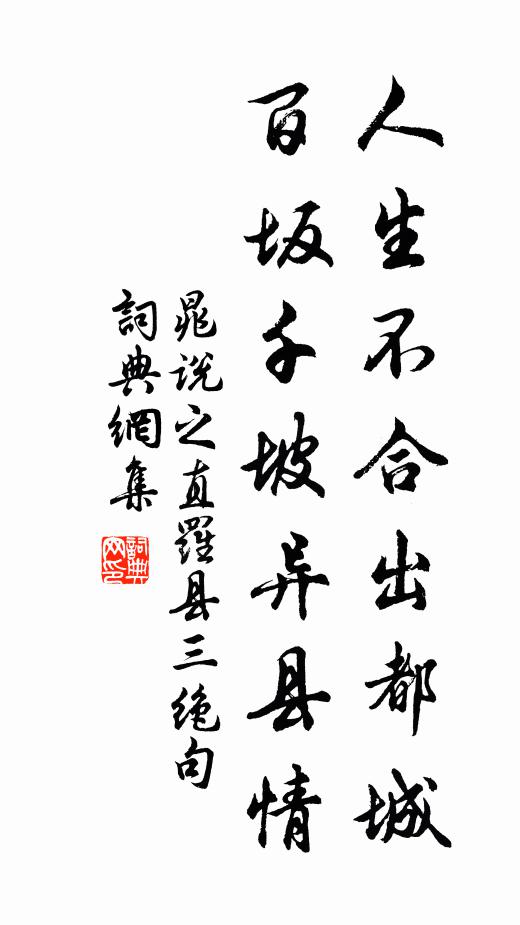 人生不合出都城
百坂千坡异县情
晁说之直羅县三绝句
詞典網集
詞典网印